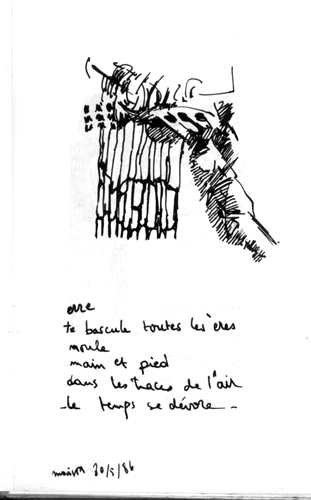 erre
te bascule toutes les ères
moule
main et pied
dans les traces de l'air
-le temps se dévore-
maison 30/5/86